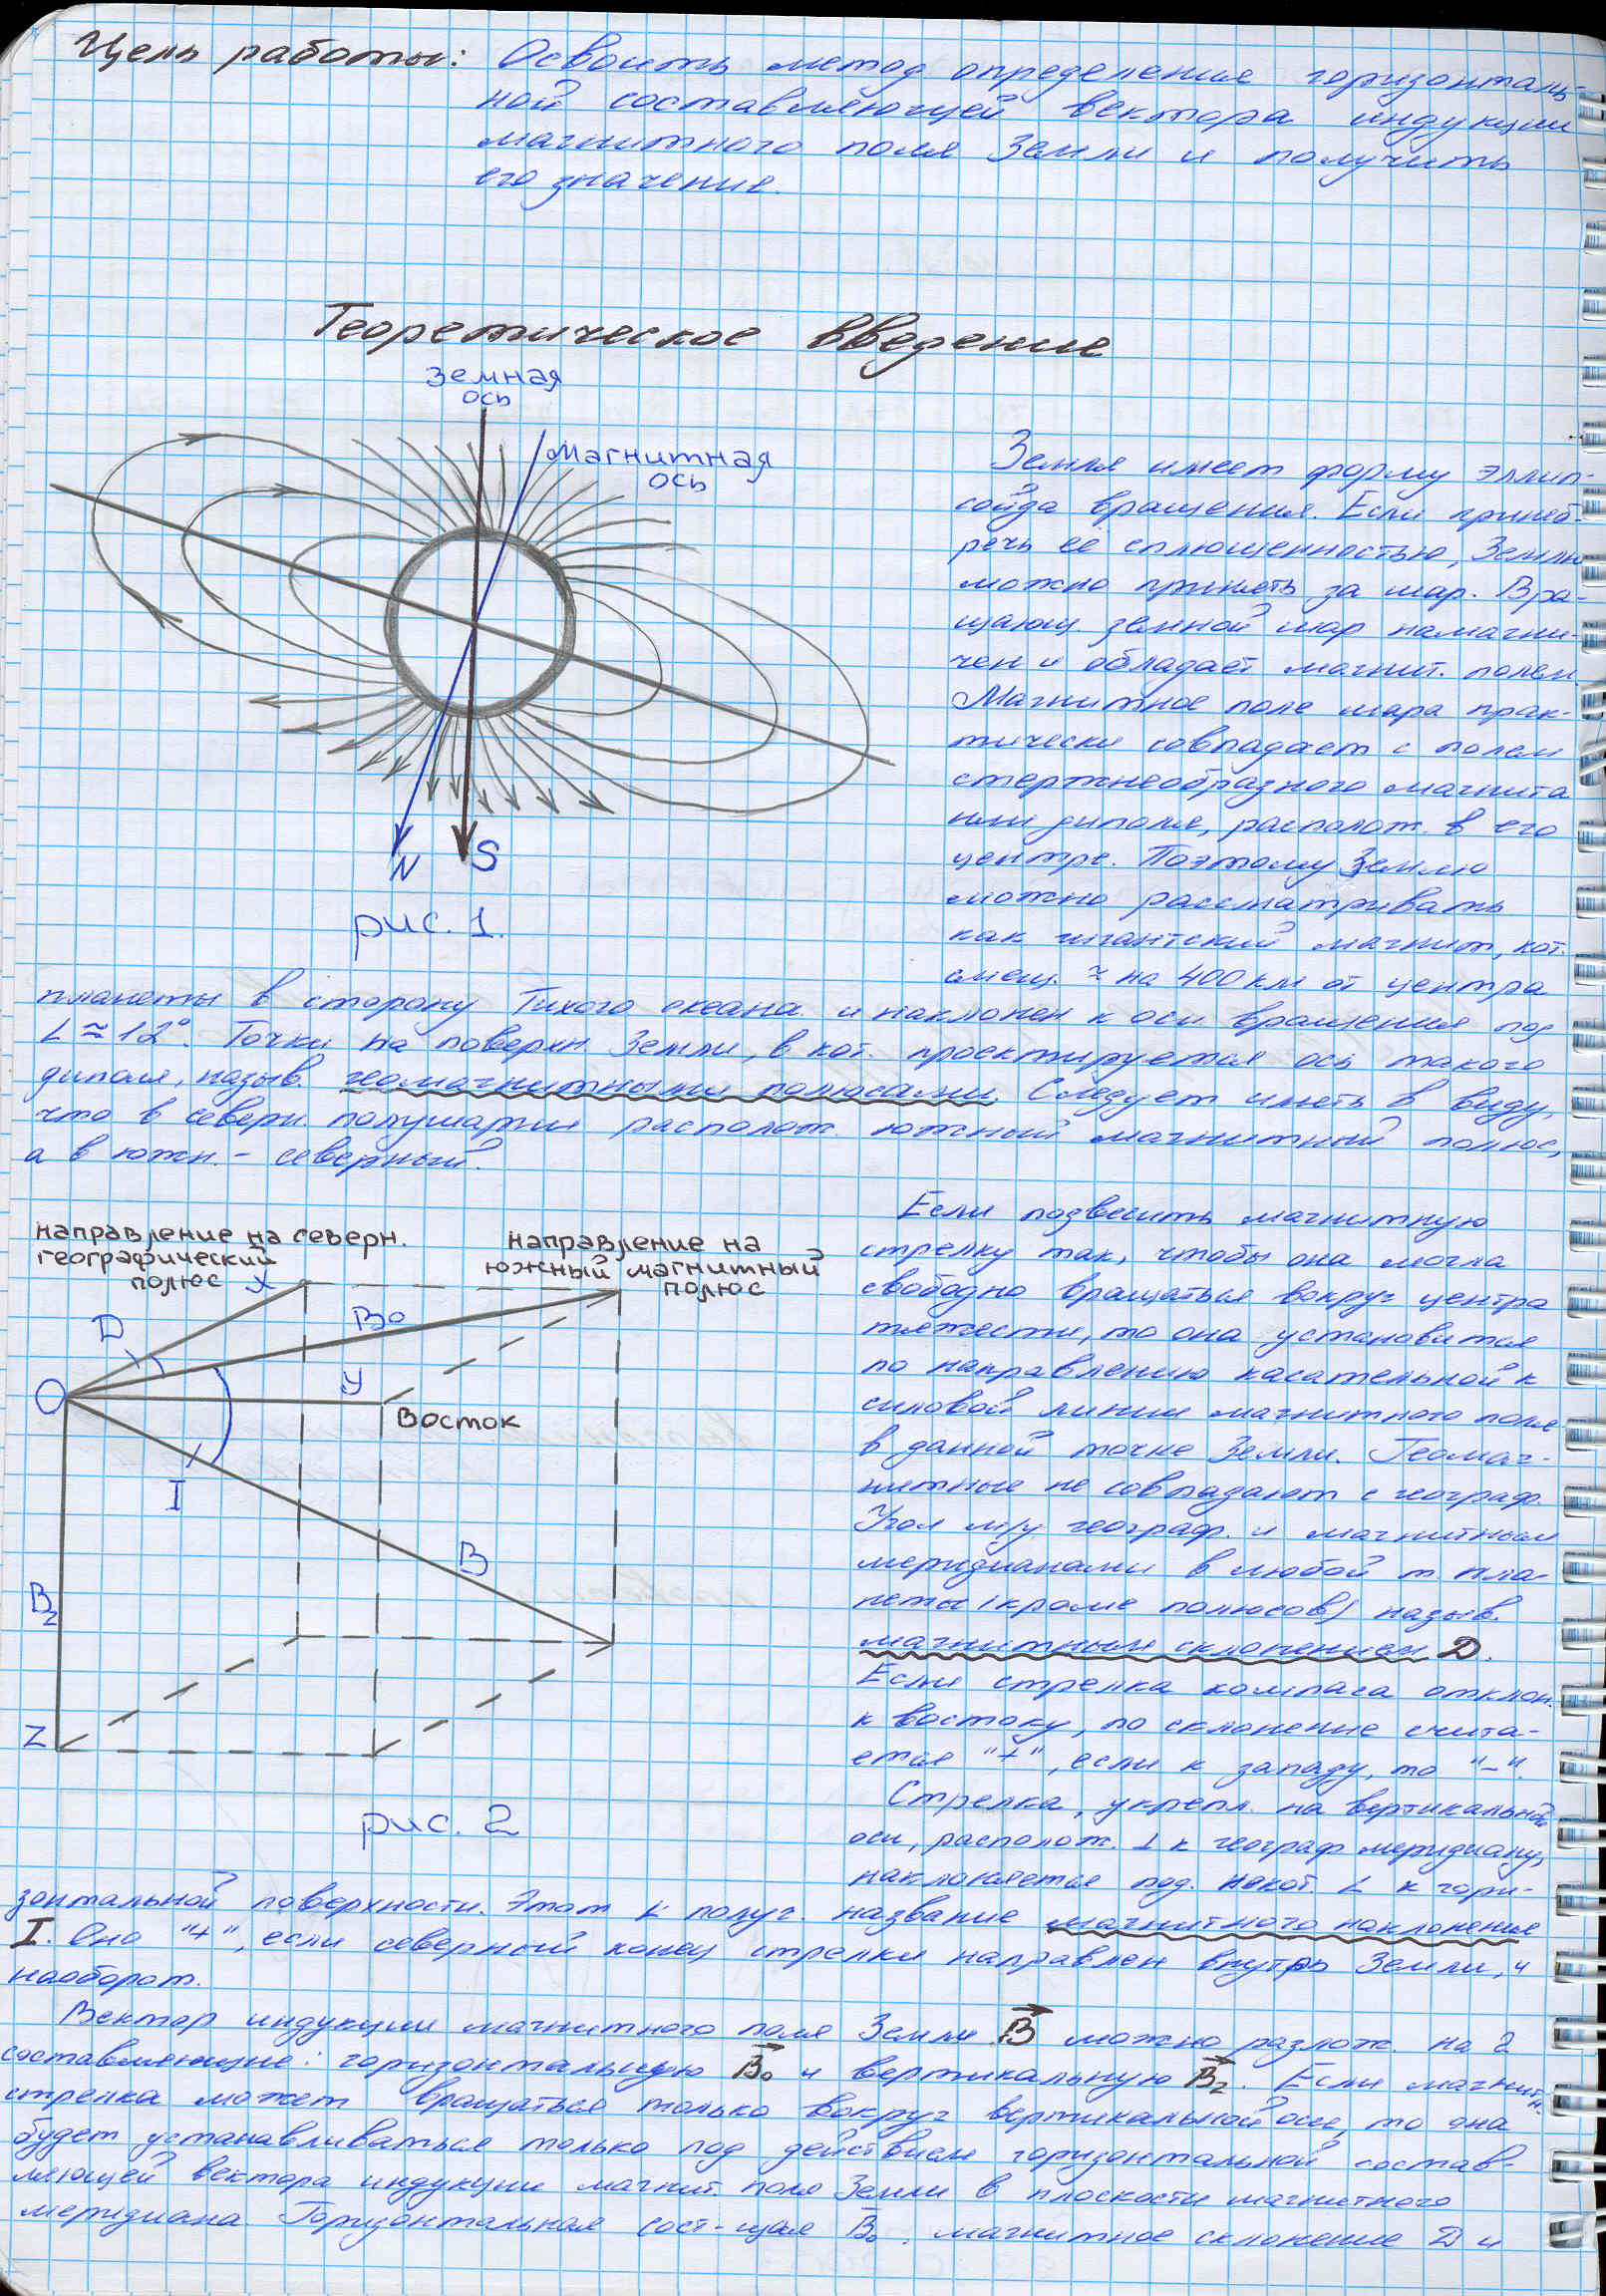 Цель работы: Освоить метод определения горизонталь-
ной составляющей вектора индукции
магнитного поля Земли и получить
его значение.
Теоретическое введение
Земная
ось
Магнитная
ось
N
S
рис. 1.
Земля имеет форму эллип-
сойда вращения. Если принеб-
речь её сплющенностью, Землю
можно принять за шар. Вра-
щающ. земной шар намагни-
чен и обладает магнит. полем.
Магнитное поле шара прак-
тически совпадает с полем
стержнеобразного магнита
или диполя, располож. в его
центре. Поэтому Землю
можно рассматривать
как гигантский магнит, кот.
смещ. ≈ на 400 км от центра
планеты в сторону Тихого океана и наклонен к оси вращения под
∠ ≈ 12°. Точки на поверхн. Земли, в кот. проектируется ось такого
диполя, назыв. геомагнитными полюсами. Следует иметь в виду,
что в северн. полушарии располож. южный магнитный полюс,
а в южн. - северный.
направление на северн.
географический
полюс X
направление на
южный магнитный
полюс
D
B₀
O
У
Восток
I
B
Bz
Z
рис. 2
Если подвесить магнитную
стрелку так, чтобы она могла
свободно вращаться вокруг центра
тяжести, то она установится
по направлению касательной к
силовой линии магнитного поля
в данной точке Земли. Геомаг-
нитные не совпадают с географ.
Угол м/у географ. и магнитным
меридианами в любой т. пла-
неты (кроме полюсов) назыв.
магнитным склонением D.
Если стрелка компаса отклон.
к востоку, то склонение счита-
ется "+", если к западу, то "-".
Стрелка, укрепл. на вертикальной
оси, располож. ⊥ к географ меридиану,
наклоняется под. некот. ∠ к гори-
зонтальной поверхности. Этот ∠ получ. название магнитного наклонения
I. Оно "+", если северный конец стрелки направлен внутрь Земли, и
наоборот.
Вектор индукции магнитного поля Земли B можно разлож. на 2
составляющие: горизонтальную B₀ и вертикальную Bz. Если магнитн.
стрелка может вращаться только вокруг вертикальной оси, то она
будет устанавливаться только под действием горизонтальной состав-
ляющей вектора индукции магнит. поля Земли в плоскости магнитного
меридиана. Горизонтальная сост-щая B₀, магнитное склонение D и